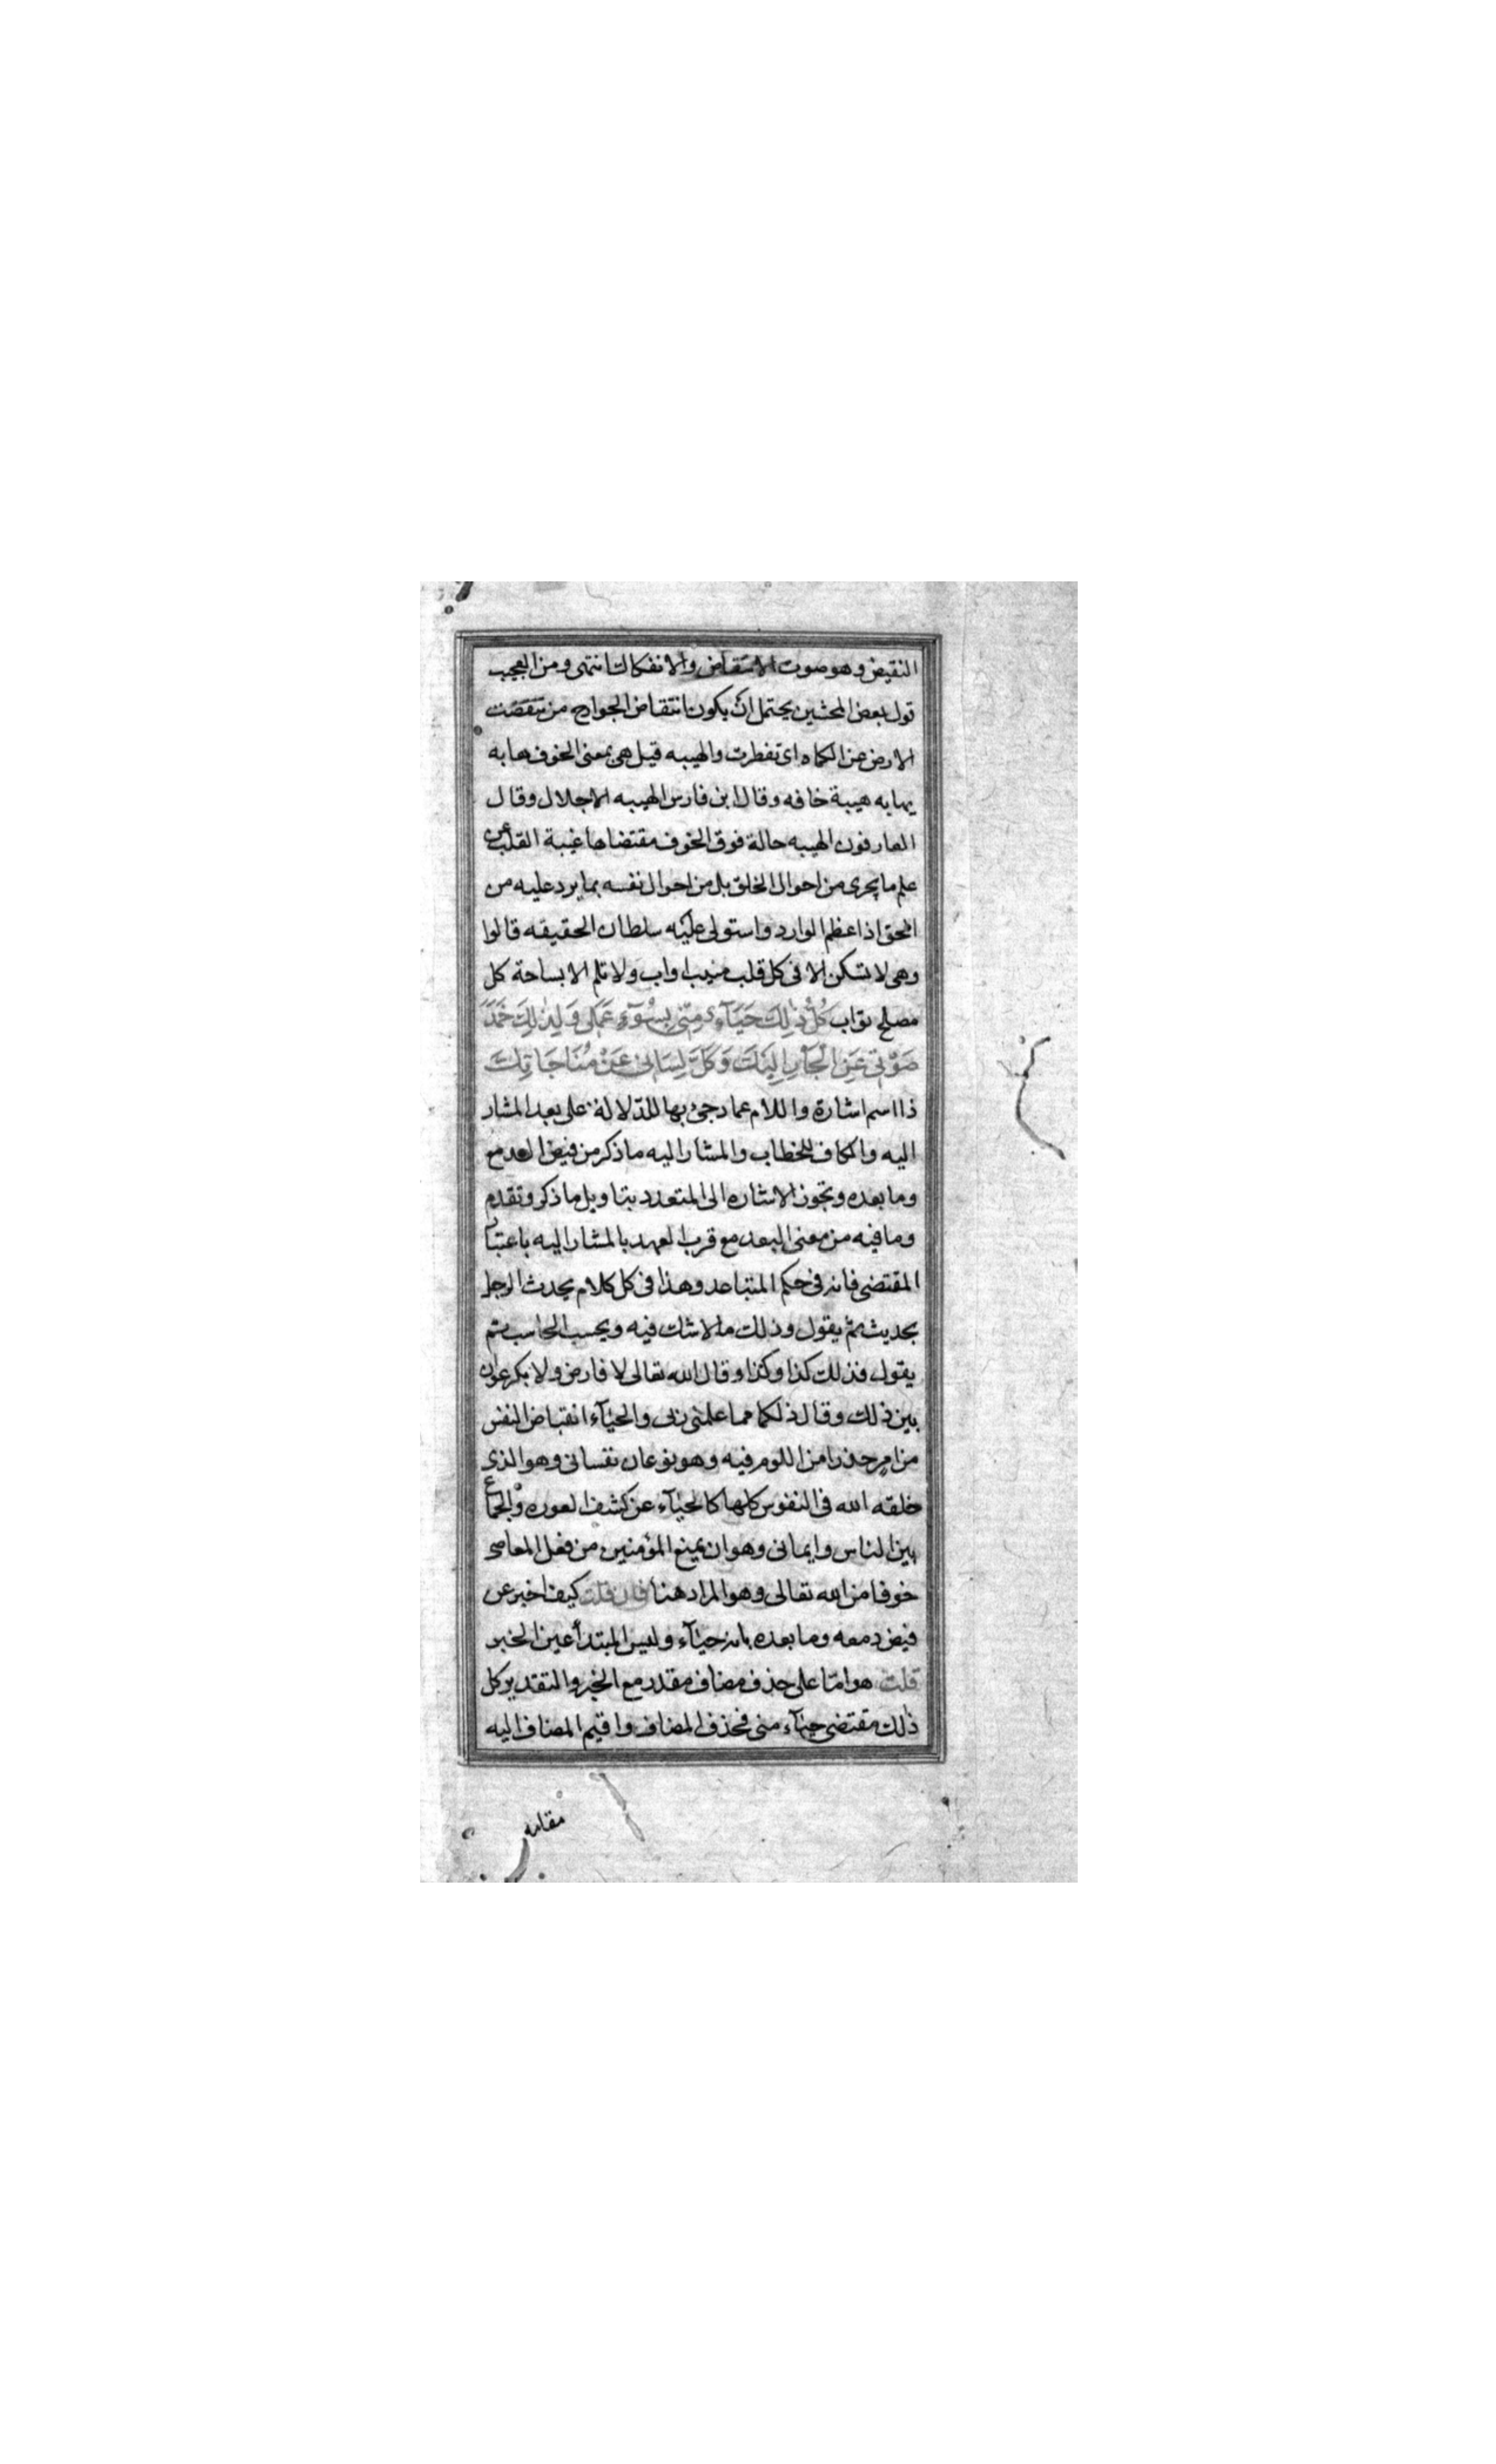 النقيض وهو صوت الانتقاض والانفكاك انتهى ومن العجيب
قول بعض المحشين يحتمل ان يكون انتقاض الجوارح من تنقضت
الارض عن الكماه اى تفطرت والهيبه قيل هى بمعنى الخوف هابه
يهابه هيبة خافه وقال ابن فارس الهيبه الاجلال وقال
العارفون الهيبه حالة فوق الخوف مقتضاها غيبة القلب عن
علم ما يجرى من احوال الخلق بل من احوال نفسه بما يرد عليه من
الحق اذا عظم الوارد واستولى عليه سلطان الحقيقه قالوا
وهى لا تسكن الا فى كل قلب منيب اواب ولا تلم الا بساحة كل
مصلح تواب كُلُّ ذٰلِكَ حَيَآءً مِنّى بِسُوۤءِ عَمَلى وَلِذٰلِكَ خَمَدَ
صَوْتى عَنِ الْجَأْرِ اِلَيْكَ وَكَلَّ لِسَانى عَنْ مُنَاجَاتِكَ
ذا اسم اشارة واللام عماد جئ بها للدلالة على بعد المشار
اليه والكاف للخطاب والمشار اليه ما ذكر من فيض الدمع
وما بعده وتجوز الاشاره الى المتعدد بتاويل ما ذكر وتقدم
وما فيه من معنى البعد مع قرب العهد بالمشار اليه باعتبار
المقتضى فانه فى حكم المتباعد وهذا فى كل كلام يحدث الرجل
بحديث ثم يقول وذلك ما لا شك فيه ويحسب الحاسب ثم
يقول فذلك كذا وكذا وقال الله تعالى لا فارض ولا بكر عوان
بين ذلك وقال ذلكما مما علمنى ربى والحيآء انقباض النفس
من امر حذرا من اللوم فيه وهو نوعان نفسانى وهو الذى
خلقه الله فى النفوس كلها كالحيآء عن كشف العوره والجماع
بين الناس وايمانى وهو ان يمنع المؤمنين من فعل المعاصى
خوفا من الله تعالى وهو المراد هنا فان قلت كيف اخبر عن
فيض دمعه وما بعده بانه حيآء وليس المبتدأ عين الخبر
قلت هو امّا على حذف مضاف مقدر مع الخبر والتقدير كل
ذلك مقتضى حيآء منى فحذف المضاف واقيم المضاف اليه
مقامه